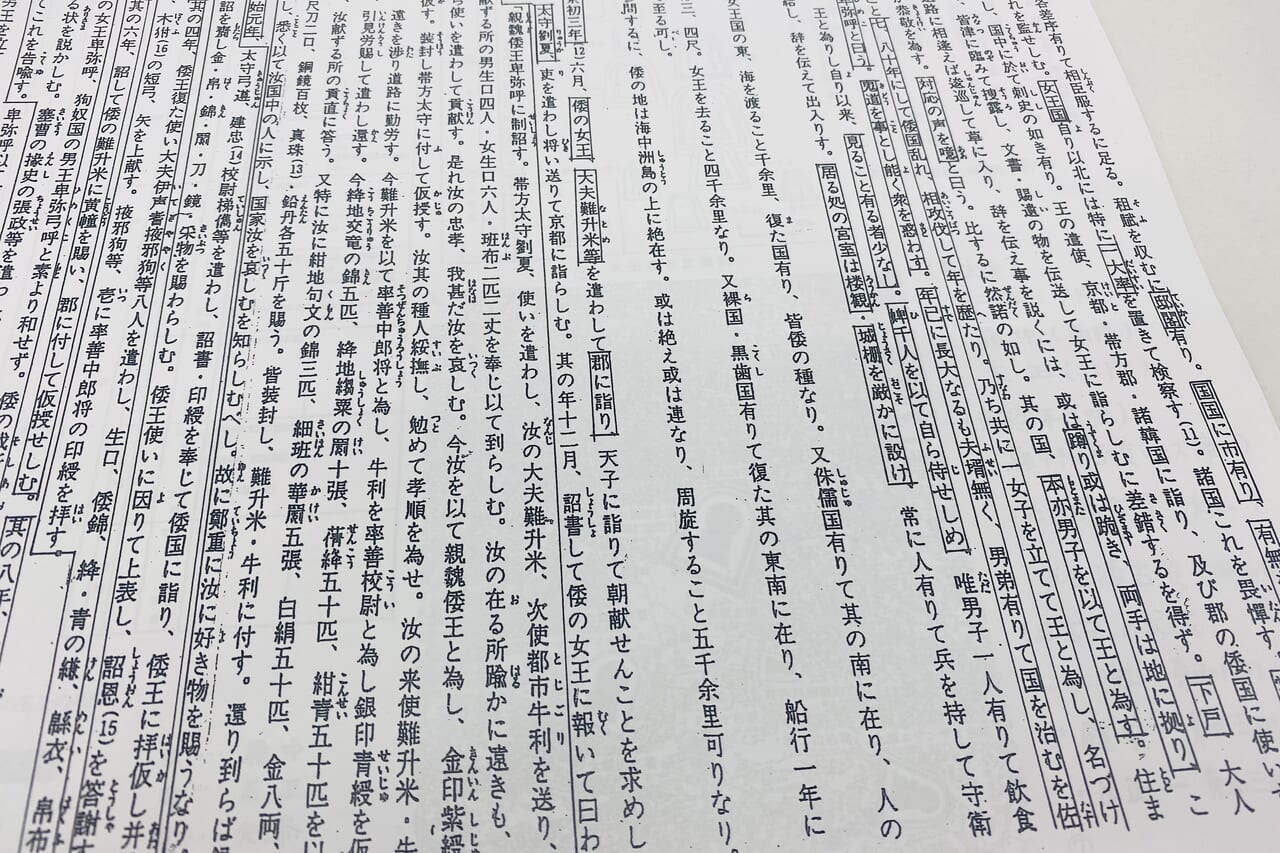 各差序有りて相臣服するに足る。租賦を収むに邸閣有り。国国に市有り、有無
れを監せしむ。女王国自り以北には特に一大率を置きて検察す(11)。諸国これを畏憚す。
し国中に於て刺史の如き有り。王の遣使、京都・帯方郡・諸韓国に詣り、及び郡の倭国に使い
皆津に臨みて捜露し、文書・賜遺の物を伝送して女王に詣らしむに差錯するを得ず。下戸 大人
路に相逢えば逡巡して草に入り、辞を伝え事を説くには、或は蹲り或は跪き、両手は地に拠り、こ
恭敬を為す。対応の声を噫と曰う。比するに然諾の如し。其の国、本亦男子を以て王と為す。住ま
七、八十年にして倭国乱れ、相攻伐して年を歴たり。乃ち共に一女子を立てて王と為し、名づけ
卑弥呼と曰う。鬼道を事とし能く衆を惑わす。年已に長大なるも夫壻無く、男弟有りて国を治むを佐
王と為りし自り以来、見ること有る者少なし。婢千人を以て自ら侍せしめ、唯男子一人有りて飲食
給し、辞を伝えて出入りす。居る処の宮室は楼観・城柵を厳かに設け、常に人有りて兵を持して守衛
女王国の東、海を渡ること千余里、復た国有り、皆倭の種なり。又侏儒国有りて其の南に在り、人の
三、四尺。女王を去ること四千余里なり。又裸国・黒歯国有りて復た其の東南に在り、船行一年に
至る可し。
問するに、倭の地は海中洲島の上に絶在す。或は絶え或は連なり、周旋すること五千余里可りなり。
初三年(12)六月、倭の女王、大夫難升米等を遣わして郡に詣り、天子に詣りて朝献せんことを求めし
太守劉夏、吏を遣わし将い送りて京都に詣らしむ。其の年十二月、詔書して倭の女王に報いて曰わ
「親魏倭王卑弥呼に制詔す。帯方太守劉夏、使いを遣わし、汝の大夫難升米、次使都市牛利を送り、
献する所の男生口四人・女生口六人・班布二匹二丈を奉じ以て到らしむ。汝の在る所踰かに遠きも、
使いを遣わして貢献す。是れ汝の忠孝、我甚だ汝を哀しむ。今汝を以て親魏倭王と為し、金印紫綬
仮す。装封し帯方太守に付して仮授す。汝其の種人綏撫し、勉めて孝順を為せ。汝の来使難升米・牛
遠きを渉り道路に勤労す。今難升米を以て率善中郎将と為し、牛利を率善校尉と為し銀印青綬を仮
引見労賜して遣わし還す。今絳地交竜の錦五匹、絳地縐粟の罽十張、蒨絳五十匹、紺青五十匹を以
汝献する所の貢直に答う。又特に汝に紺地句文の錦三匹、細班の華罽五張、白絹五十匹、金八両、
尺刀二口、銅鏡百枚、真珠(13)・鉛丹各五十斤を賜う。皆装封し、難升米・牛利に付す。還り到らば
悉く以て汝国中の人に示し、国家汝を哀しむを知らしむべし。故に鄭重に汝に好き物を賜うなり。
始元年、太守弓遵、建忠(14)校尉梯儁等を遣わし、詔書・印綬を奉じて倭国に詣り、倭王に拝仮し并
詔を齎し金・帛・錦・罽・刀・鏡・采物を賜わらしむ。倭王使いに因りて上表し、詔恩(15)を答謝す
其の四年、倭王復た使い大夫伊声耆掖邪狗等八人を遣わし、生口、倭錦、絳・青の縑、緜衣、帛布
木𤝔(16)の短弓、矢を上献す。掖邪狗等、壱に率善中郎将の印綬を拝す。
其の六年、詔して倭の難升米に黄幢を賜い、郡に付して仮授せしむ。其の八年、
の女王卑弥呼、狗奴国の男王卑弥弓呼と素より和せず。倭の
る状を説かしむ。塞曹の掾史の張政等を遣
これを告喩す。卑弥呼以